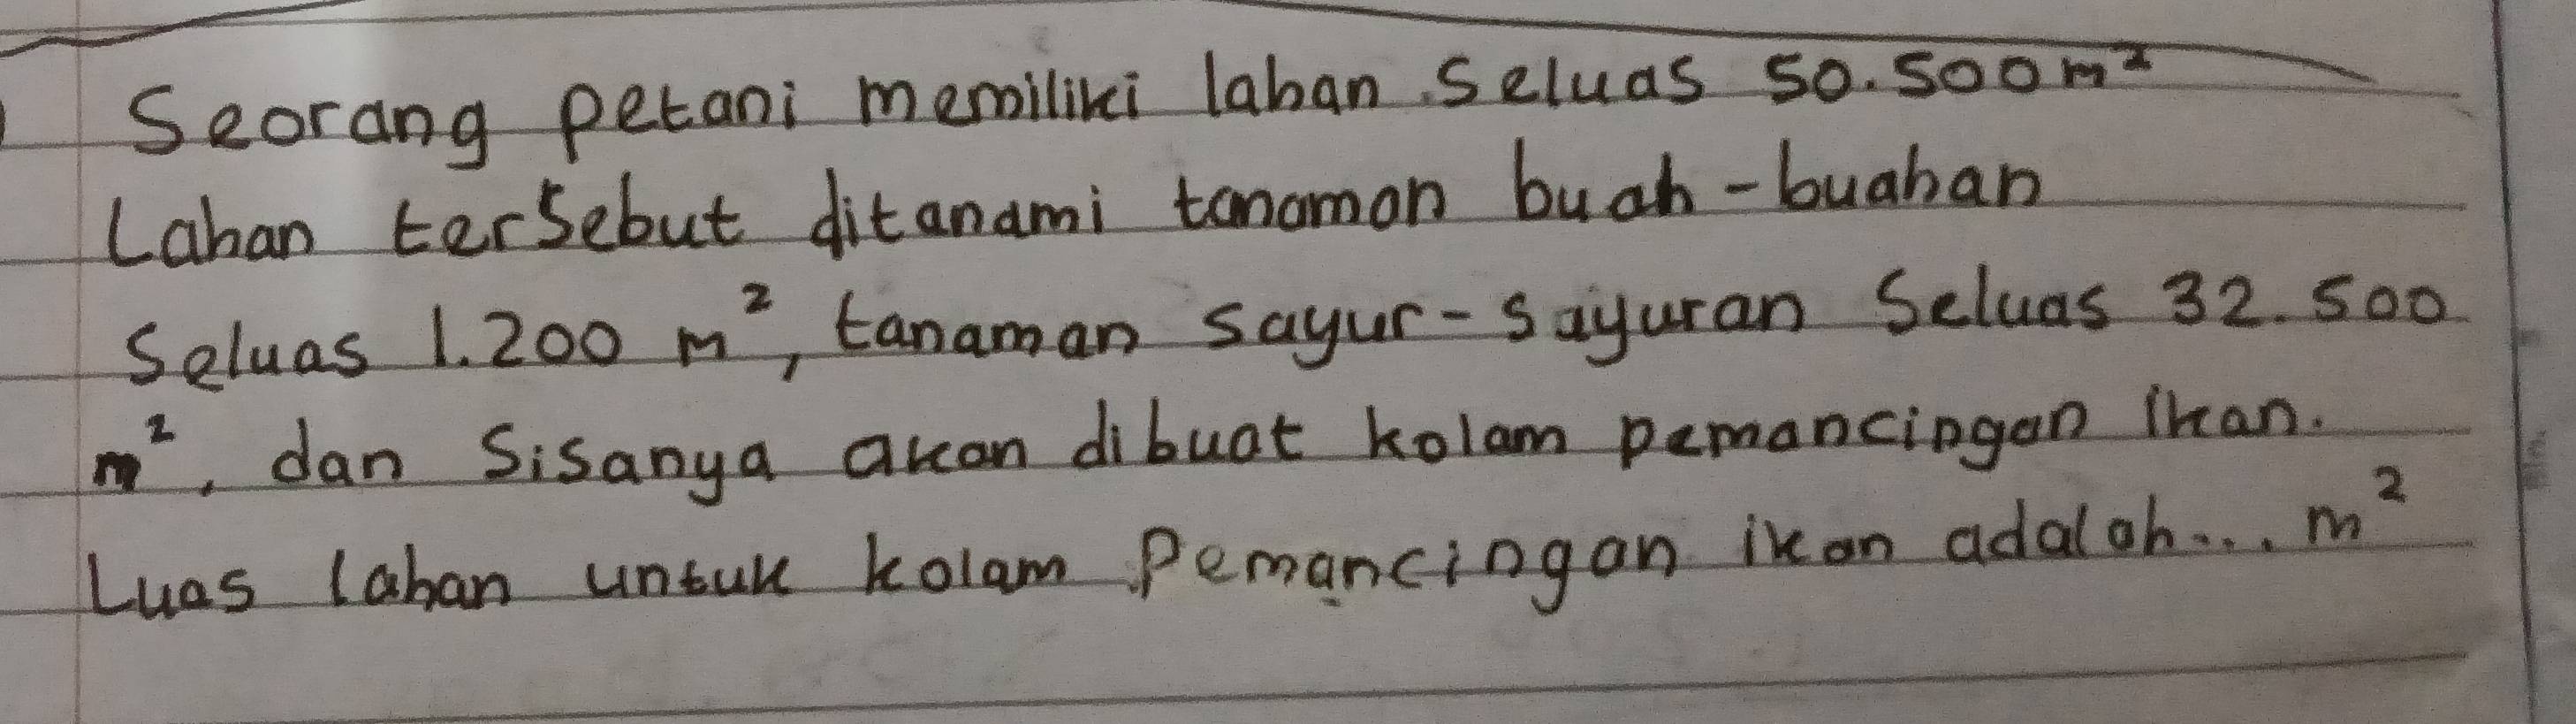 Seorang petani memiliki lahan seluas 50.500 m²
Lahan tersebut ditanami tanaman buah-buahan
Seluas 1.200 m², tanaman sayur-sayuran Seluas 32.500
m², dan Sisanya akan dibuat kolam pemancingan ikan.
Luas lahan untuk kolam Pemancingan ikan adalah.... m²